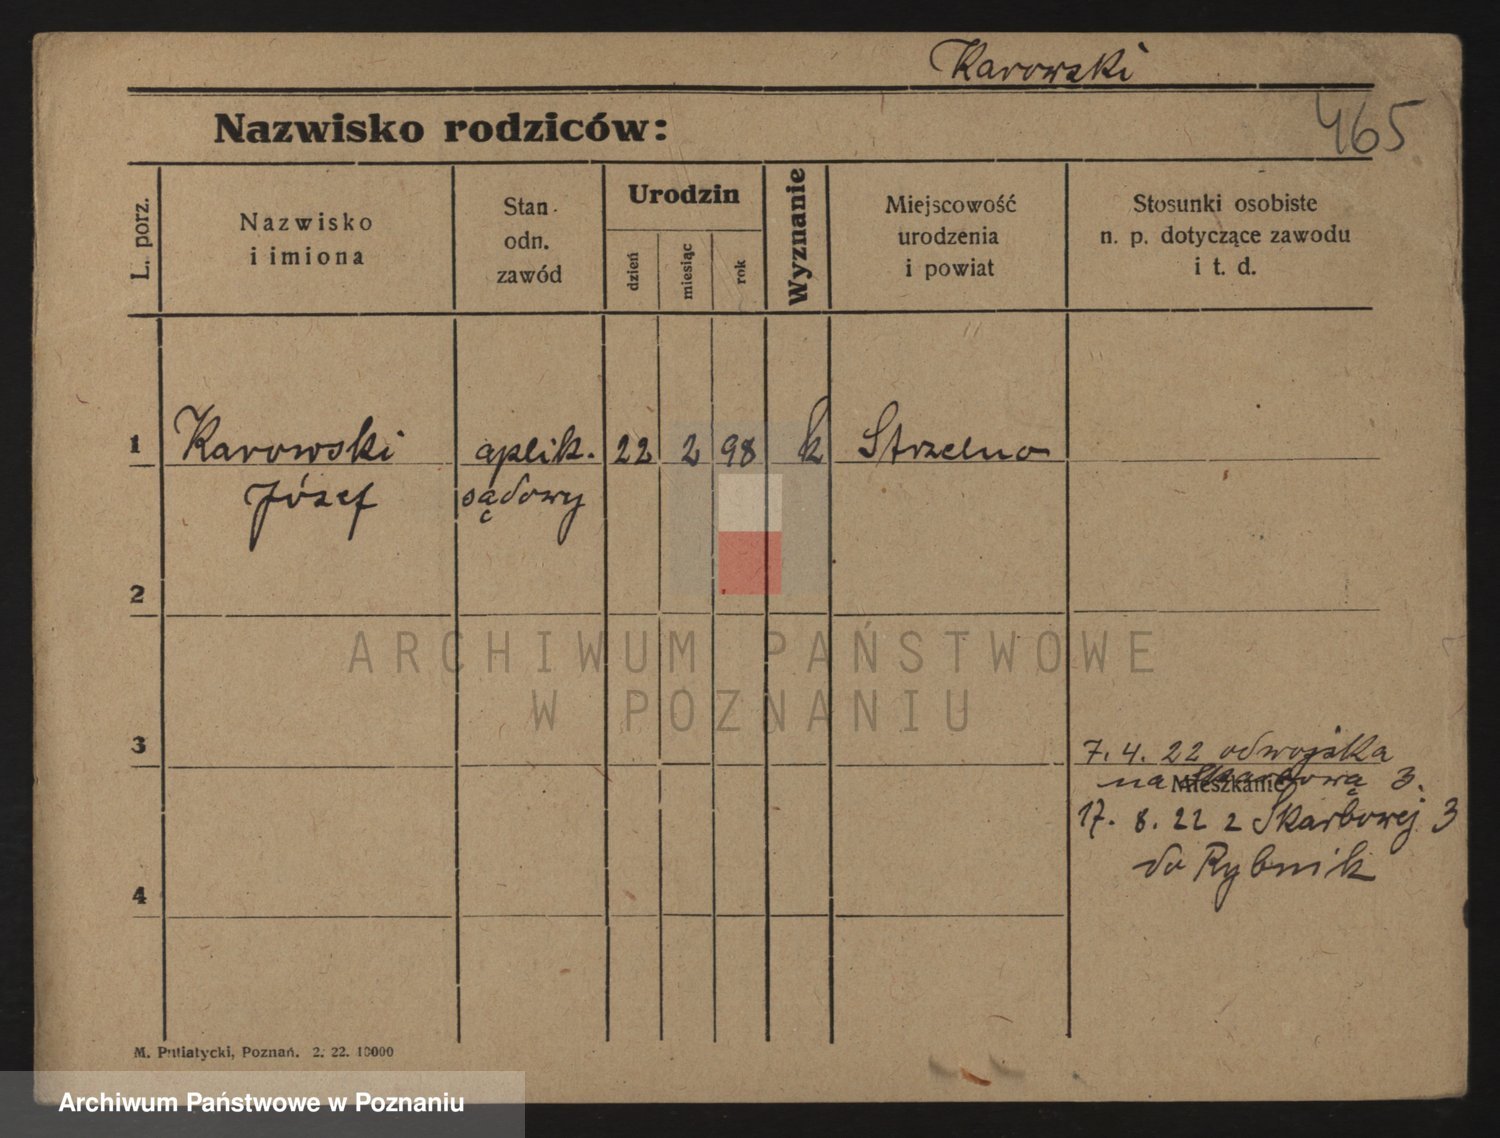 Karowski
Nazwisko rodziców:
465
L. porz.
Nazwisko
i imiona
Stan
odn.
zawód
Urodzin
dzień
miesiąc
rok
Wyznanie
Miejscowość
urodzenia
i powiat
Stosunki osobiste
n. p. dotyczące zawodu
i t. d.
1
Karowski
Józef
aplik.
sądowy
22
2
98
k
Strzelno
2
ARCHIWUM PAŃSTWOWE
W POZNANIU
3
7. 4. 22 od wojska
na Skarbową 3.
Mieszkanie
17. 8. 22 z Skarbowej 3
do Rybnik
4
M. Putiatycki, Poznań. 2. 22. 10000
Archiwum Państwowe w Poznaniu